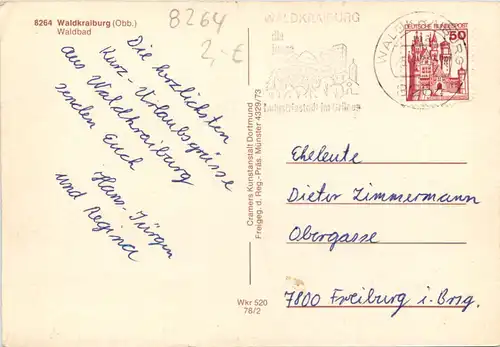 8264 Waldkraiburg (Obb.)
Waldbad
8264
2,-€
Die herzlichsten
Kurz-Urlaubsgrüsse
aus Waldkraiburg
senden Euch
Hans-Jürgen
und Regina
Cramers Kunstanstalt Dortmund
Freigeg. d. Reg.-Präs. Münster 4329/73
Wkr 520
76/2
WALDKRAIBURG
die
junge
im Grünen
WALDKRAIBURG
DEUTSCHE BUNDESPOST
50
Eheleute
Dieter Zimmermann
Obergasse
7800 Freiburg i. Brsg.